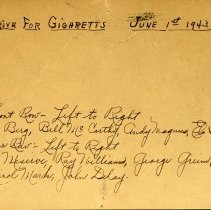 ive For Cigaretts June 1st 194
ont Row- Left to Right
Berg, Bill McCarthy, Andy Magnus, Ed
Row- Left to Right
Meserve, Ray Williams, George Green
Mack, John